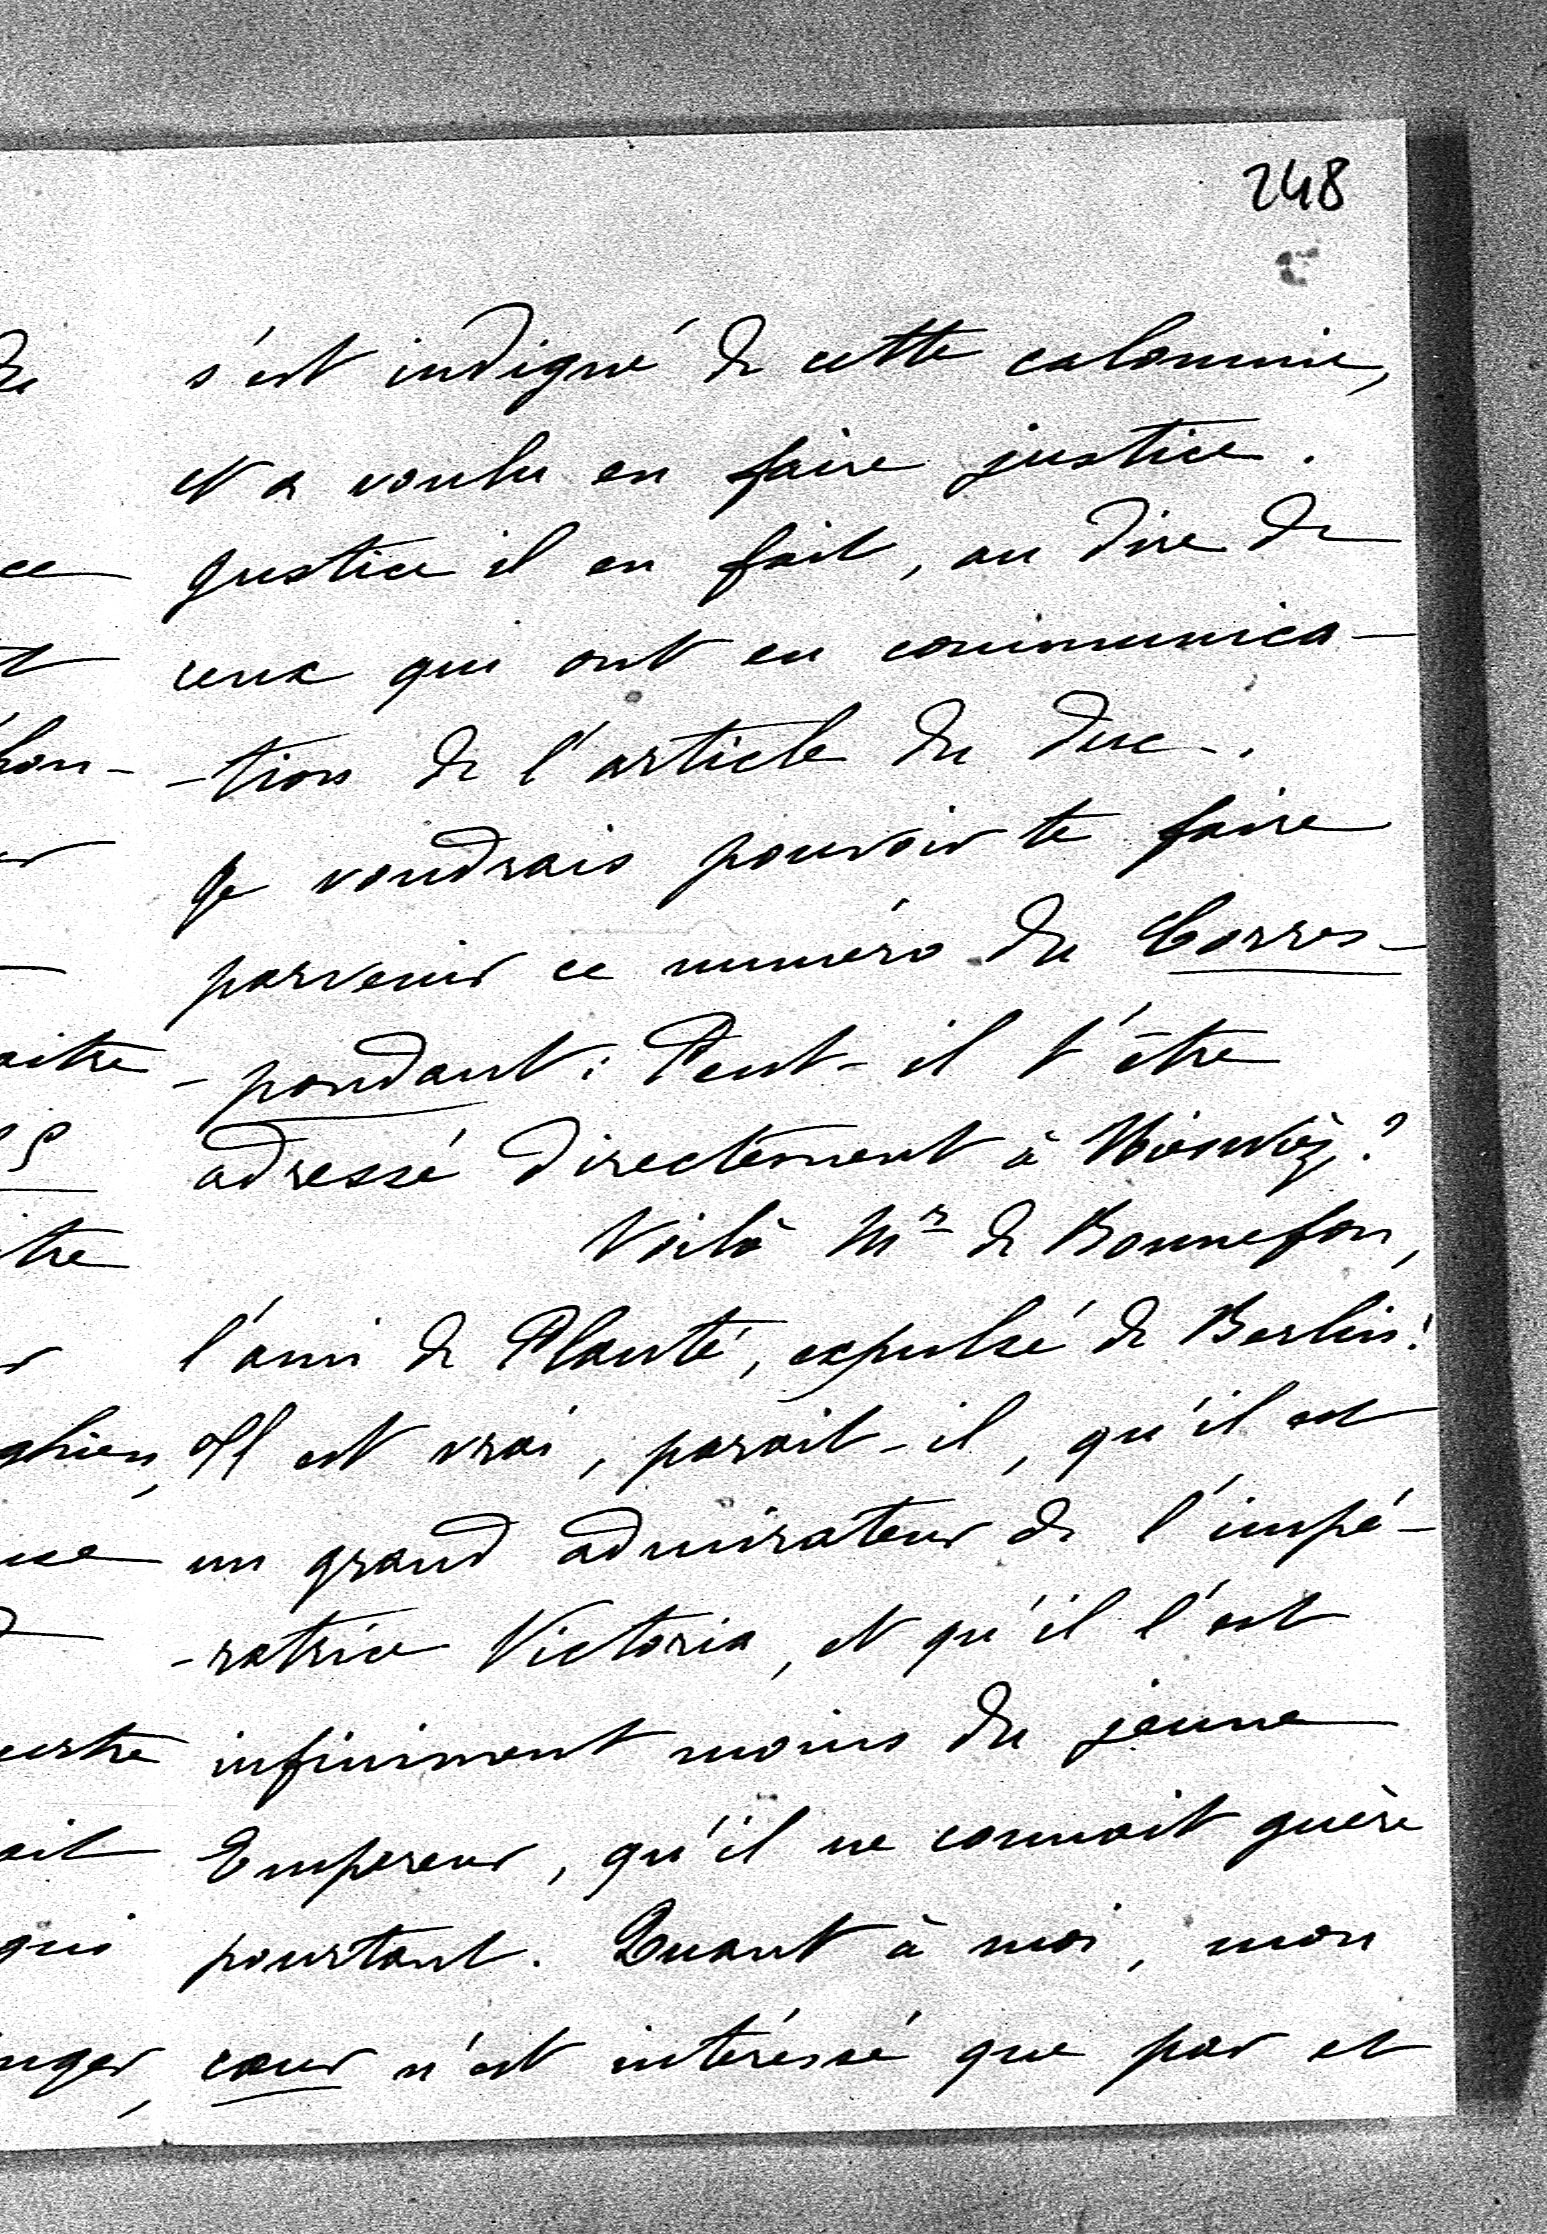 248
s'est indigné de cette calomnie,
et a voulu en faire justice.
Justice il en fait, au dire de
ceux qui ont eu communica-
-tion de l'article du duc-.
Je voudrais pouvoir te faire
parvenir ce numéro du Corres-
-pondant: Peut-il t'être
adressé directement à Nieswiéz?
Voilà Mr de Bonnefon,
l'ami de Planté, expulsé de Berlin!
Il est vrai, parait-il, qu'il est
un grand admirateur de l'impé-
-ratrice Victoria, et qu'il l'est
infiniment moins du jeune
Empereur, qu'il ne connait guère
pourtant. Quant à moi, mon
cœur n'est intéressé que par et